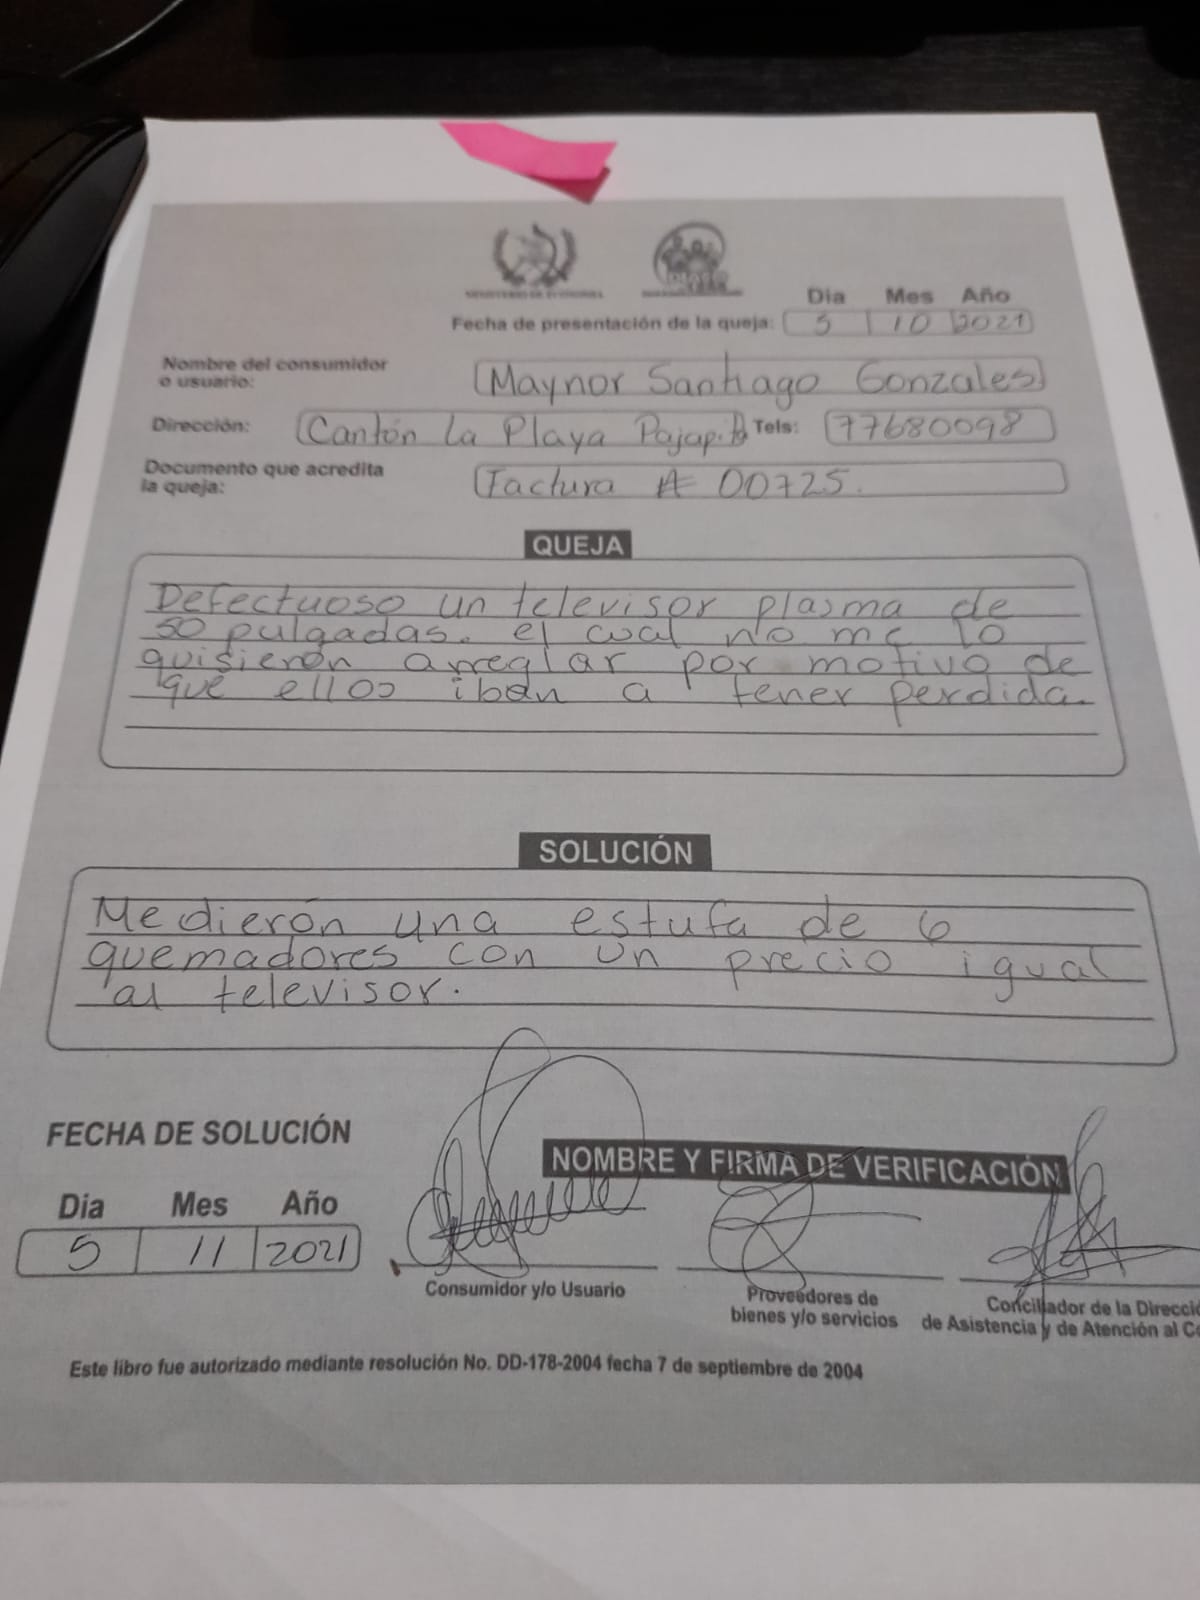 MINISTERIO DE ECONOMIA
Dia Mes Año
Fecha de presentación de la queja: 5 10 2021
Nombre del consumidor
o usuario: Maynor Santiago Gonzales
Dirección: Cantón La Playa Pajapita Tels: 77680098
Documento que acredita
la queja: Factura A 00725.
QUEJA
Defectuoso un televisor plasma de
50 pulgadas. el cual no me lo
quisierón arreglar por motivo de
que ellos iban a tener perdida.
SOLUCIÓN
Me dierón una estufa de 6
quemadores con un precio igual
al televisor.
FECHA DE SOLUCIÓN
NOMBRE Y FIRMA DE VERIFICACIÓN
Dia Mes Año
5 11 2021
Consumidor y/o Usuario
Proveedores de
bienes y/o servicios
Conciliador de la Direcció
de Asistencia y de Atención al Co
Este libro fue autorizado mediante resolución No. DD-178-2004 fecha 7 de septiembre de 2004